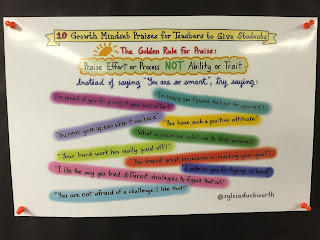 10 Growth Mindset Praises for Teachers to Give Students
The Golden Rule for Praise:
Praise Effort or Process NOT Ability or Trait
Instead of saying "You are so smart", try saying:
"I'm proud of you for giving it your best effort!"
"I'm happy you figured that out for yourself!"
"You never gave up, even when it was hard!"
"You have such a positive attitude!"
"What a creative solution to that problem!"
"Your hard work has really paid off!"
"You showed great perseverance reaching your goal!"
"I like the way you tried different strategies to figure that out"
"I admire you for trying so hard!"
"You are not afraid of a challenge. I like that!"
@sylviaduckworth